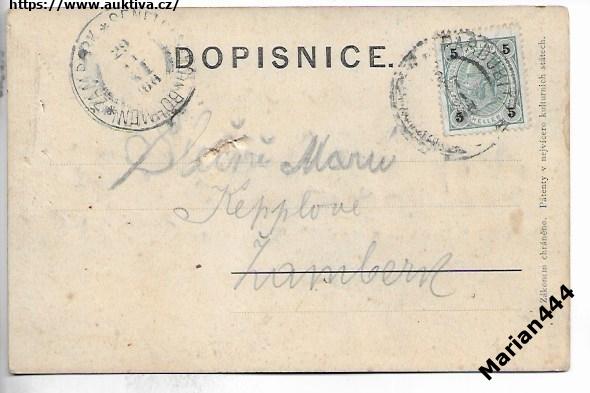 https://www.auktiva.cz/
DOPISNICE.
5 5
HELLER
5 5
Slečně Marii
Kepplové
Žamberk
Zákonem chráněno. Patenty v nejvíce kulturních státech.
Marian444